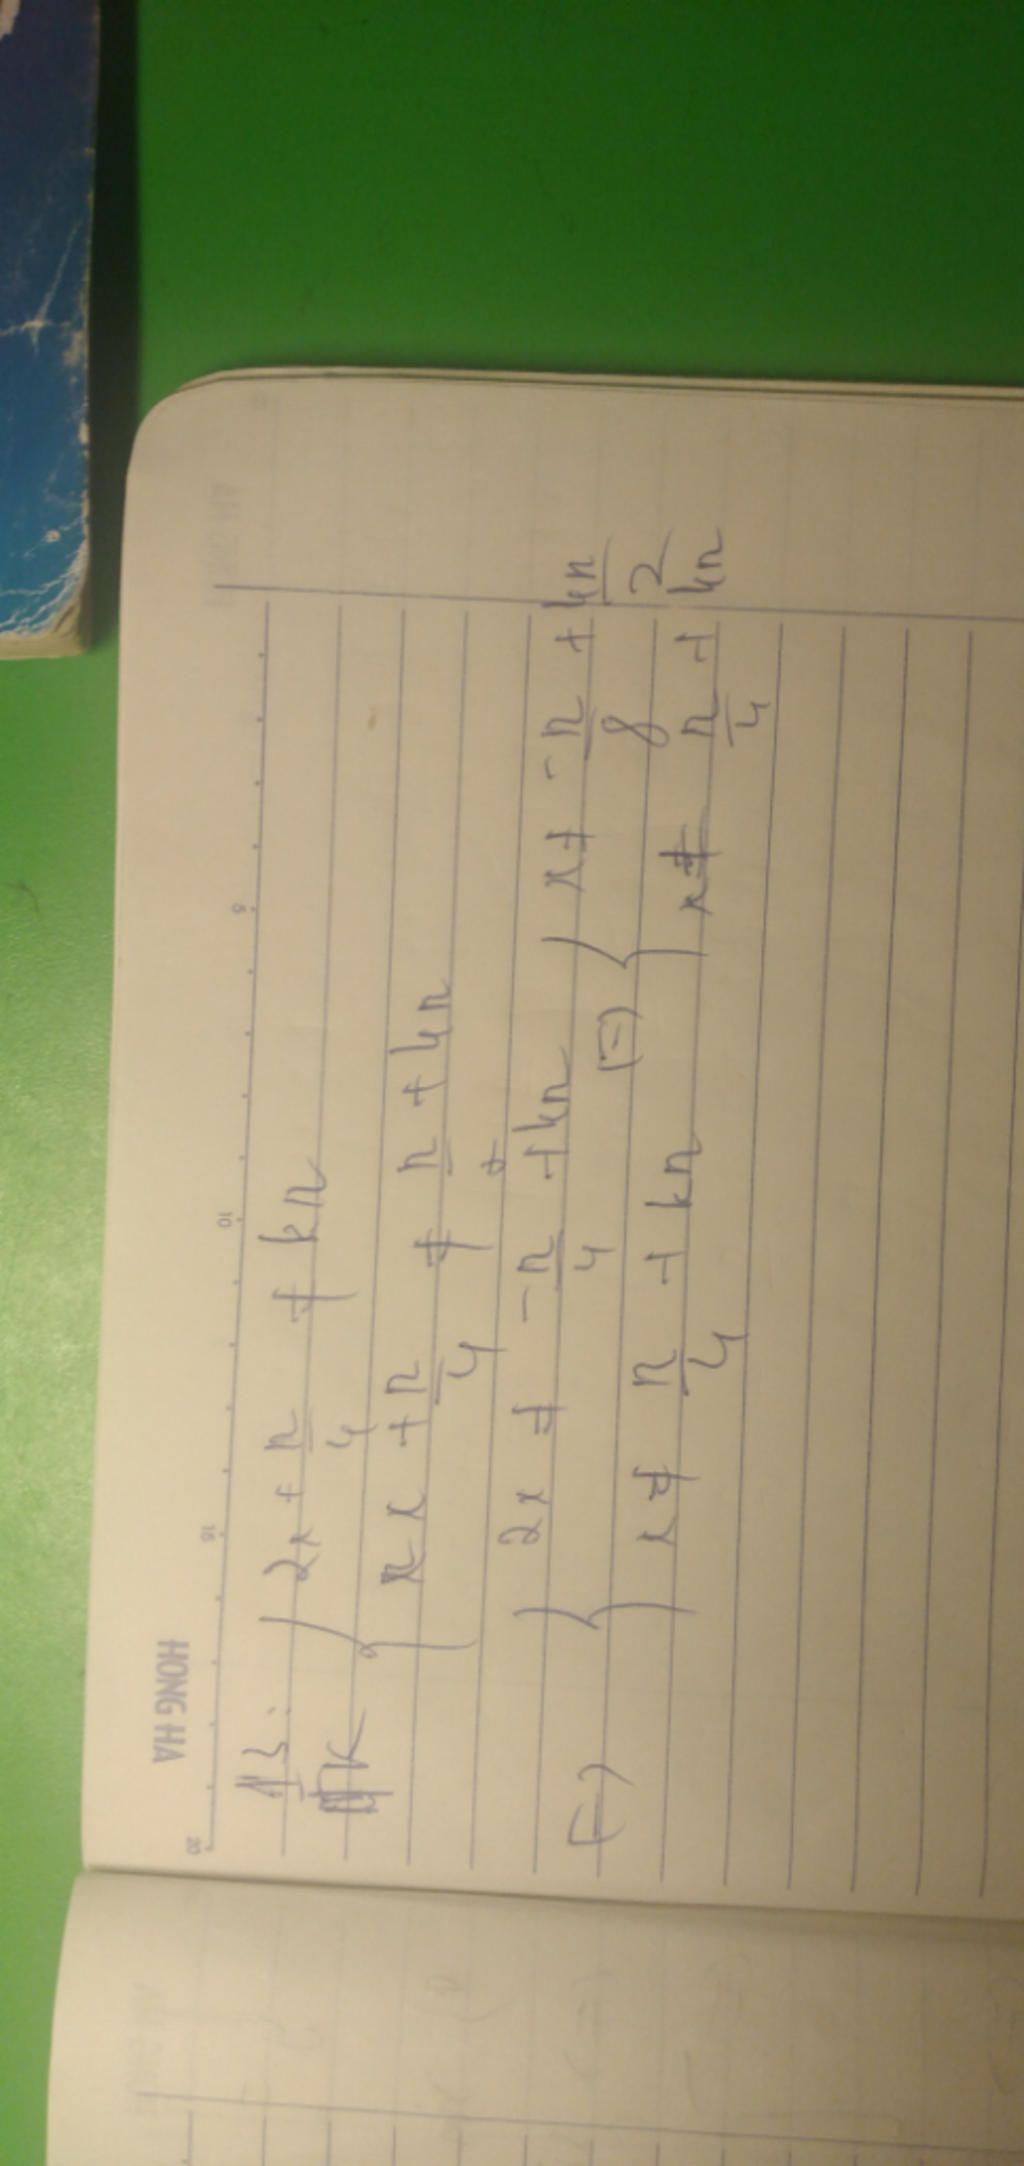 HONG HA
20 15 10 5
13:
ĐK { 2x + π/4 ≠ kπ
x + π/4 ≠ π/2 + kπ
(=) { 2x ≠ -π/4 + kπ (=) { x ≠ -π/8 + kπ/2
x ≠ π/4 + kπ x ≠ π/4 + kπ